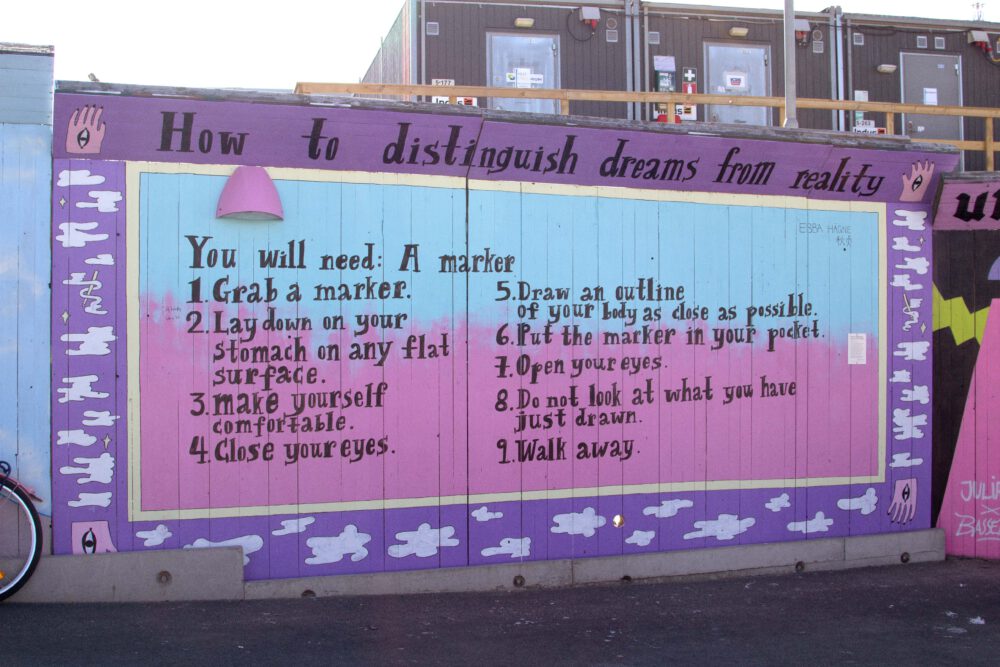 How to distinguish dreams from reality
EBBA HAGNE
You will need: A marker
1. Grab a marker.
2. Lay down on your
stomach on any flat
surface.
3. Make yourself
comfortable.
4. Close your eyes.
5. Draw an outline
of your body as close as possible.
6. Put the marker in your pocket.
7. Open your eyes.
8. Do not look at what you have
just drawn.
9. Walk away.